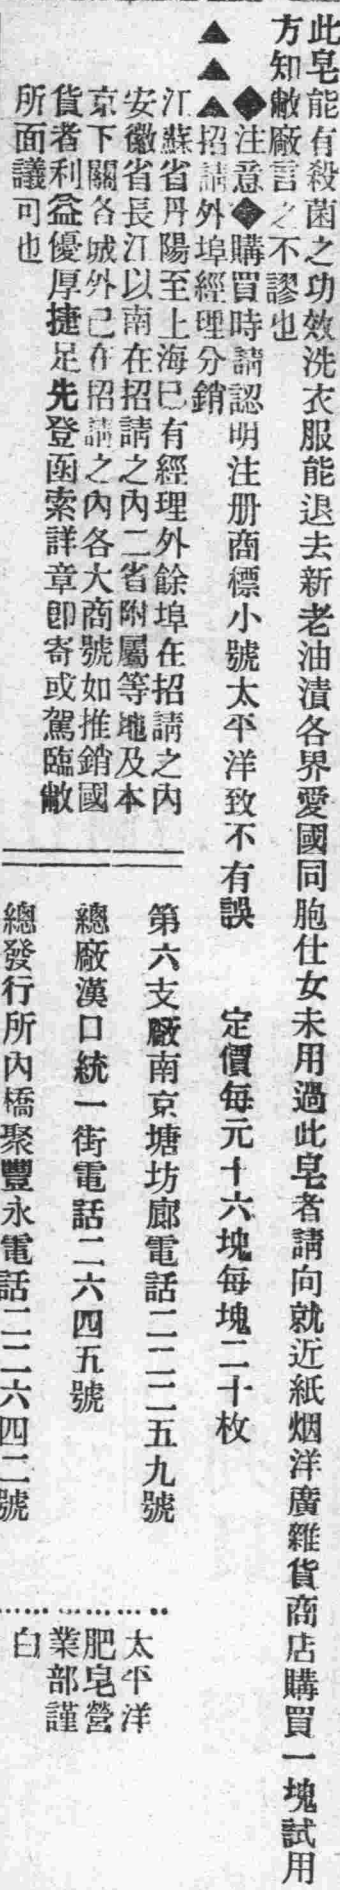 此皂能有殺菌之功效洗衣服能退去新老油漬各界愛國同胞仕女未用過此皂者請向就近紙烟洋廣雜貨商店購買一塊試用
方知敝廠言之不謬也
◆注意◆購買時請認明注册商標小號太平洋致不有誤　定價每元十六塊每塊二十枚
▲▲▲招請外埠經理分銷
江蘇省丹陽至上海已有經理外餘埠在招請之內
安徽省長江以南在招請之內二省附屬等地及本
京下關各城外已在招請之內各大商號如推銷國
貨者利益優厚捷足先登函索詳章即寄或駕臨敝
所面議可也
第六支廠南京塘坊廊電話二二二五九號
總廠漢口統一街電話二六四五號
總發行所內橋聚豐永電話二二六四二號
太平洋
肥皂營
業部謹
白